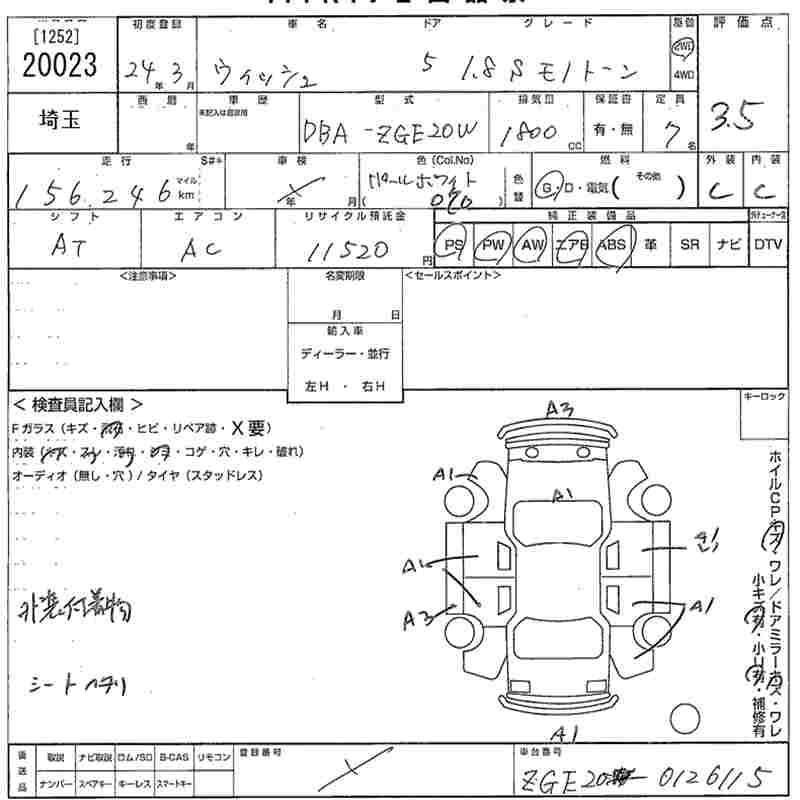 [1252]
20023
初度登録 車名 ドア グレード 駆動 評価点
24年3月 ウィッシュ 5 1.8S モノトーン 2WD 4WD
埼玉
西暦 車歴 型式 排気量 保証書 定員 3.5
未記入は自家用
年 DBA-ZGE20W 1800cc 有・無 7名
走行 S#* 車検 色(Col.No) 燃料 外装 内装
156,246 マイル km 年 月 パールホワイト ( 070 ) 色替 G・D・電気( その他 ) C C
シフト エアコン リサイクル預託金 純正装備品
AT AC 11520円 PS PW AW エアB ABS 革 SR ナビ DTV
<注意事項> 名変期限 <セールスポイント>
月 日
輸入車
ディーラー・並行
左H ・ 右H
< 検査員記入欄 > キーロック
Fガラス(キズ・・ヒビ・リペア跡・X要)
内装(キズ・スレ・汚れ・・コゲ・穴・キレ・破れ)
オーディオ(無し・穴)/タイヤ(スタッドレス)
A3
A1
A1
A1
A3
A1
A1
外装付着物
シートヘタリ
ホイルCP・キズ・ワレ/ドアミラーキズ・ワレ
小キズ有・小U有・補修有
後送品 取説 ナビ取説 ロム/SD B-CAS リモコン 登録番号 車台番号
ナンバー スペアキー キーレス スマートキー
ZGE20-0126115